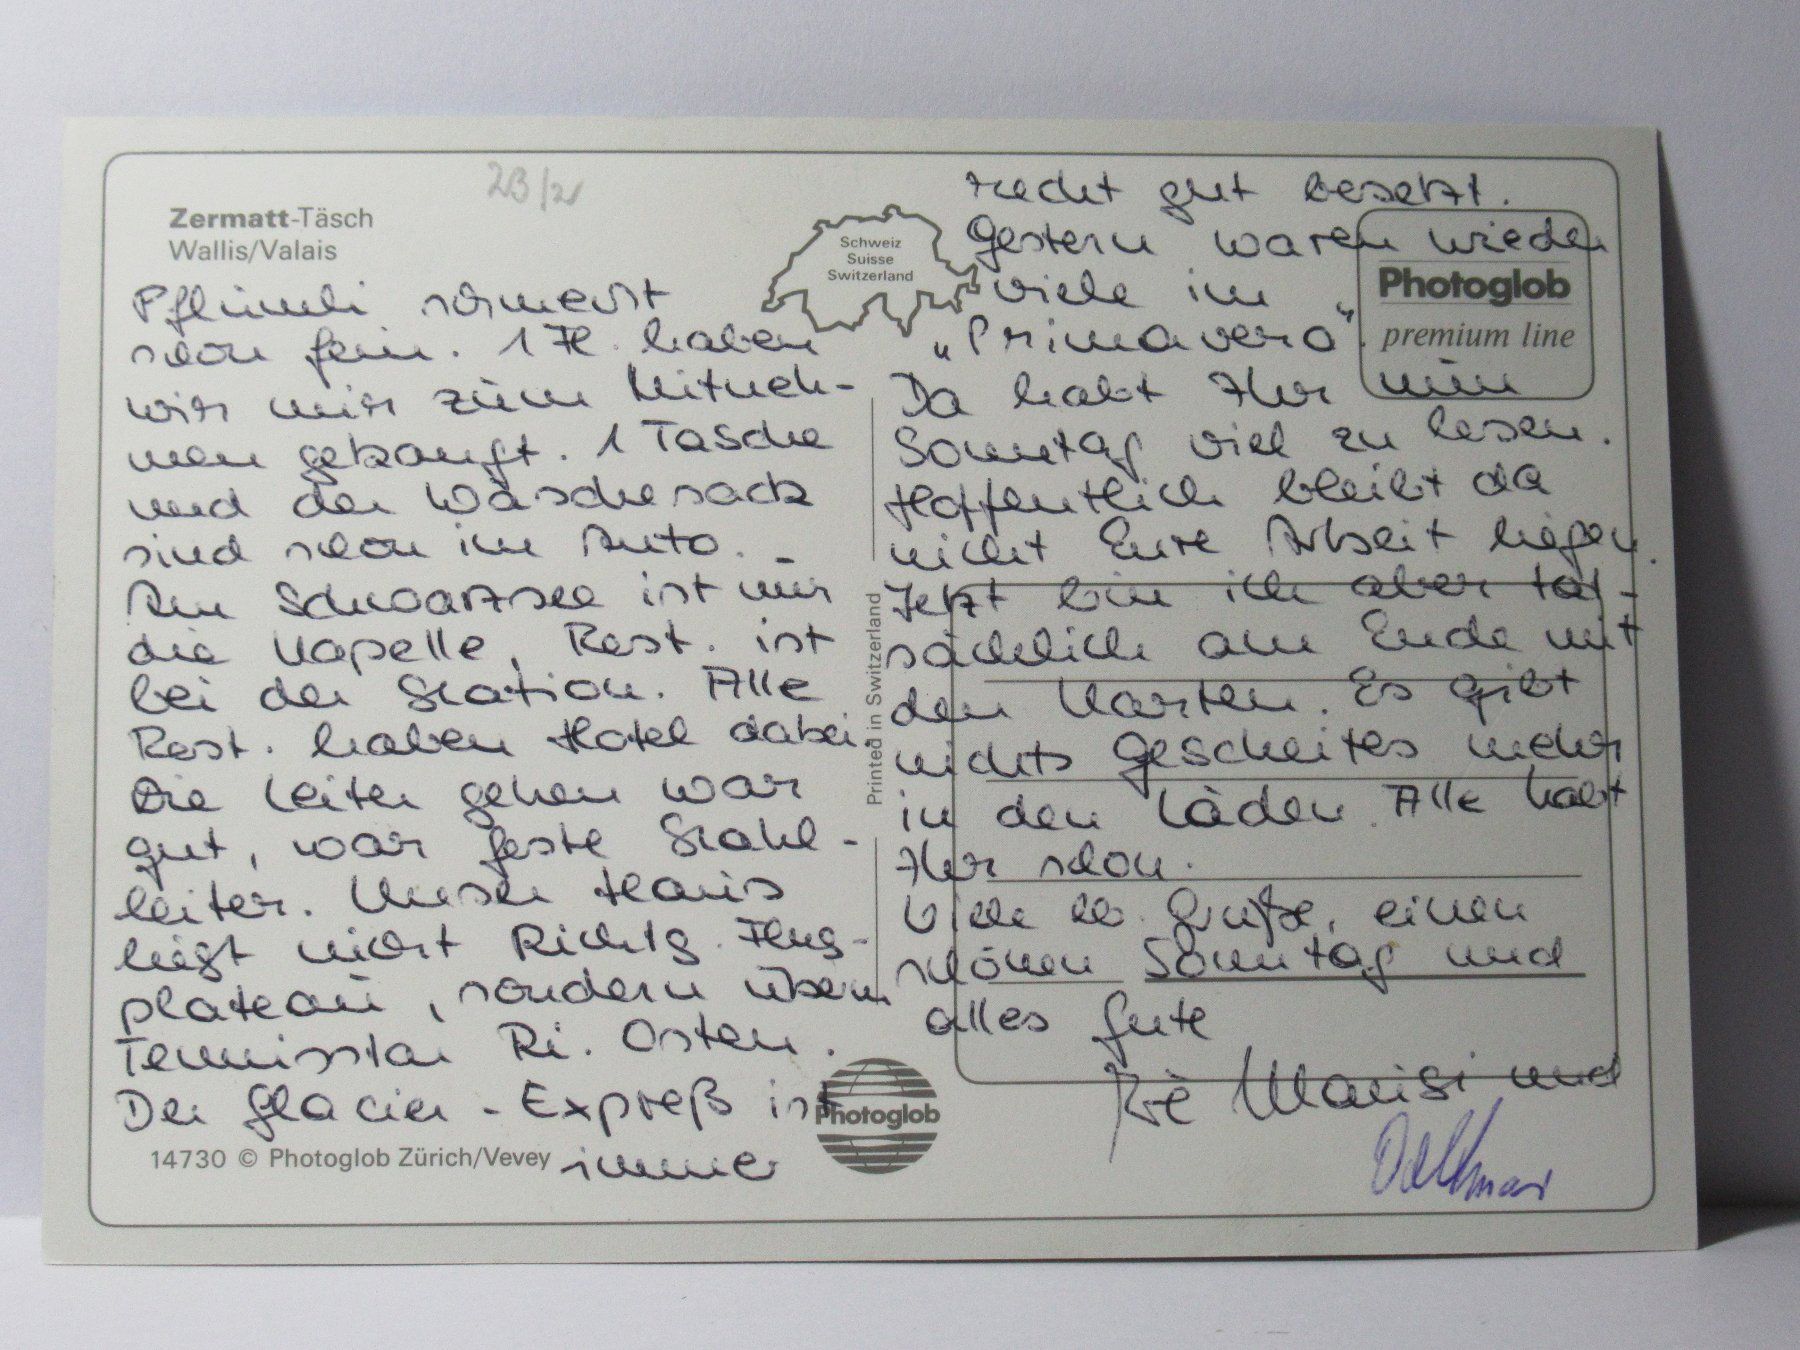 2B/21
Zermatt-Täsch
Wallis/Valais
Schweiz
Suisse
Switzerland
Pflümli schmeckt
schon fein. 1 Fl. haben
wir mir zum Mitneh-
men gekauft. 1 Tasche
und der Wäschesack
sind schon im Auto. -
Am Schwarzsee ist nur
die Kapelle, Rest. ist
bei der Station. Alle
Rest. haben Hotel dabei.
Die Leiter gehen war
gut, war feste Stahl-
leiter. Unser Haus
liegt nicht Richtg. Flug-
plateau, sondern überm
Tennisstar Ri. Osten.
Der Glacier-Expreß ist
immer
14730 © Photoglob Zürich/Vevey
Photoglob
Printed in Switzerland
recht gut besetzt.
Gestern waren wieder
viele im
„Primavera“.
Photoglob
premium line
Da habt Ihr nun
Sonntag viel zu lesen.
Hoffentlich bleibt da
nicht Eure Arbeit liegen.
Jetzt bin ich aber tat-
sächlich am Ende mit
den Karten. Es gibt
nichts Gescheites mehr
in den Läden. Alle habt
Ihr schon.
Viele lb. Grüße, einen
schönen Sonntag und
alles Gute
und